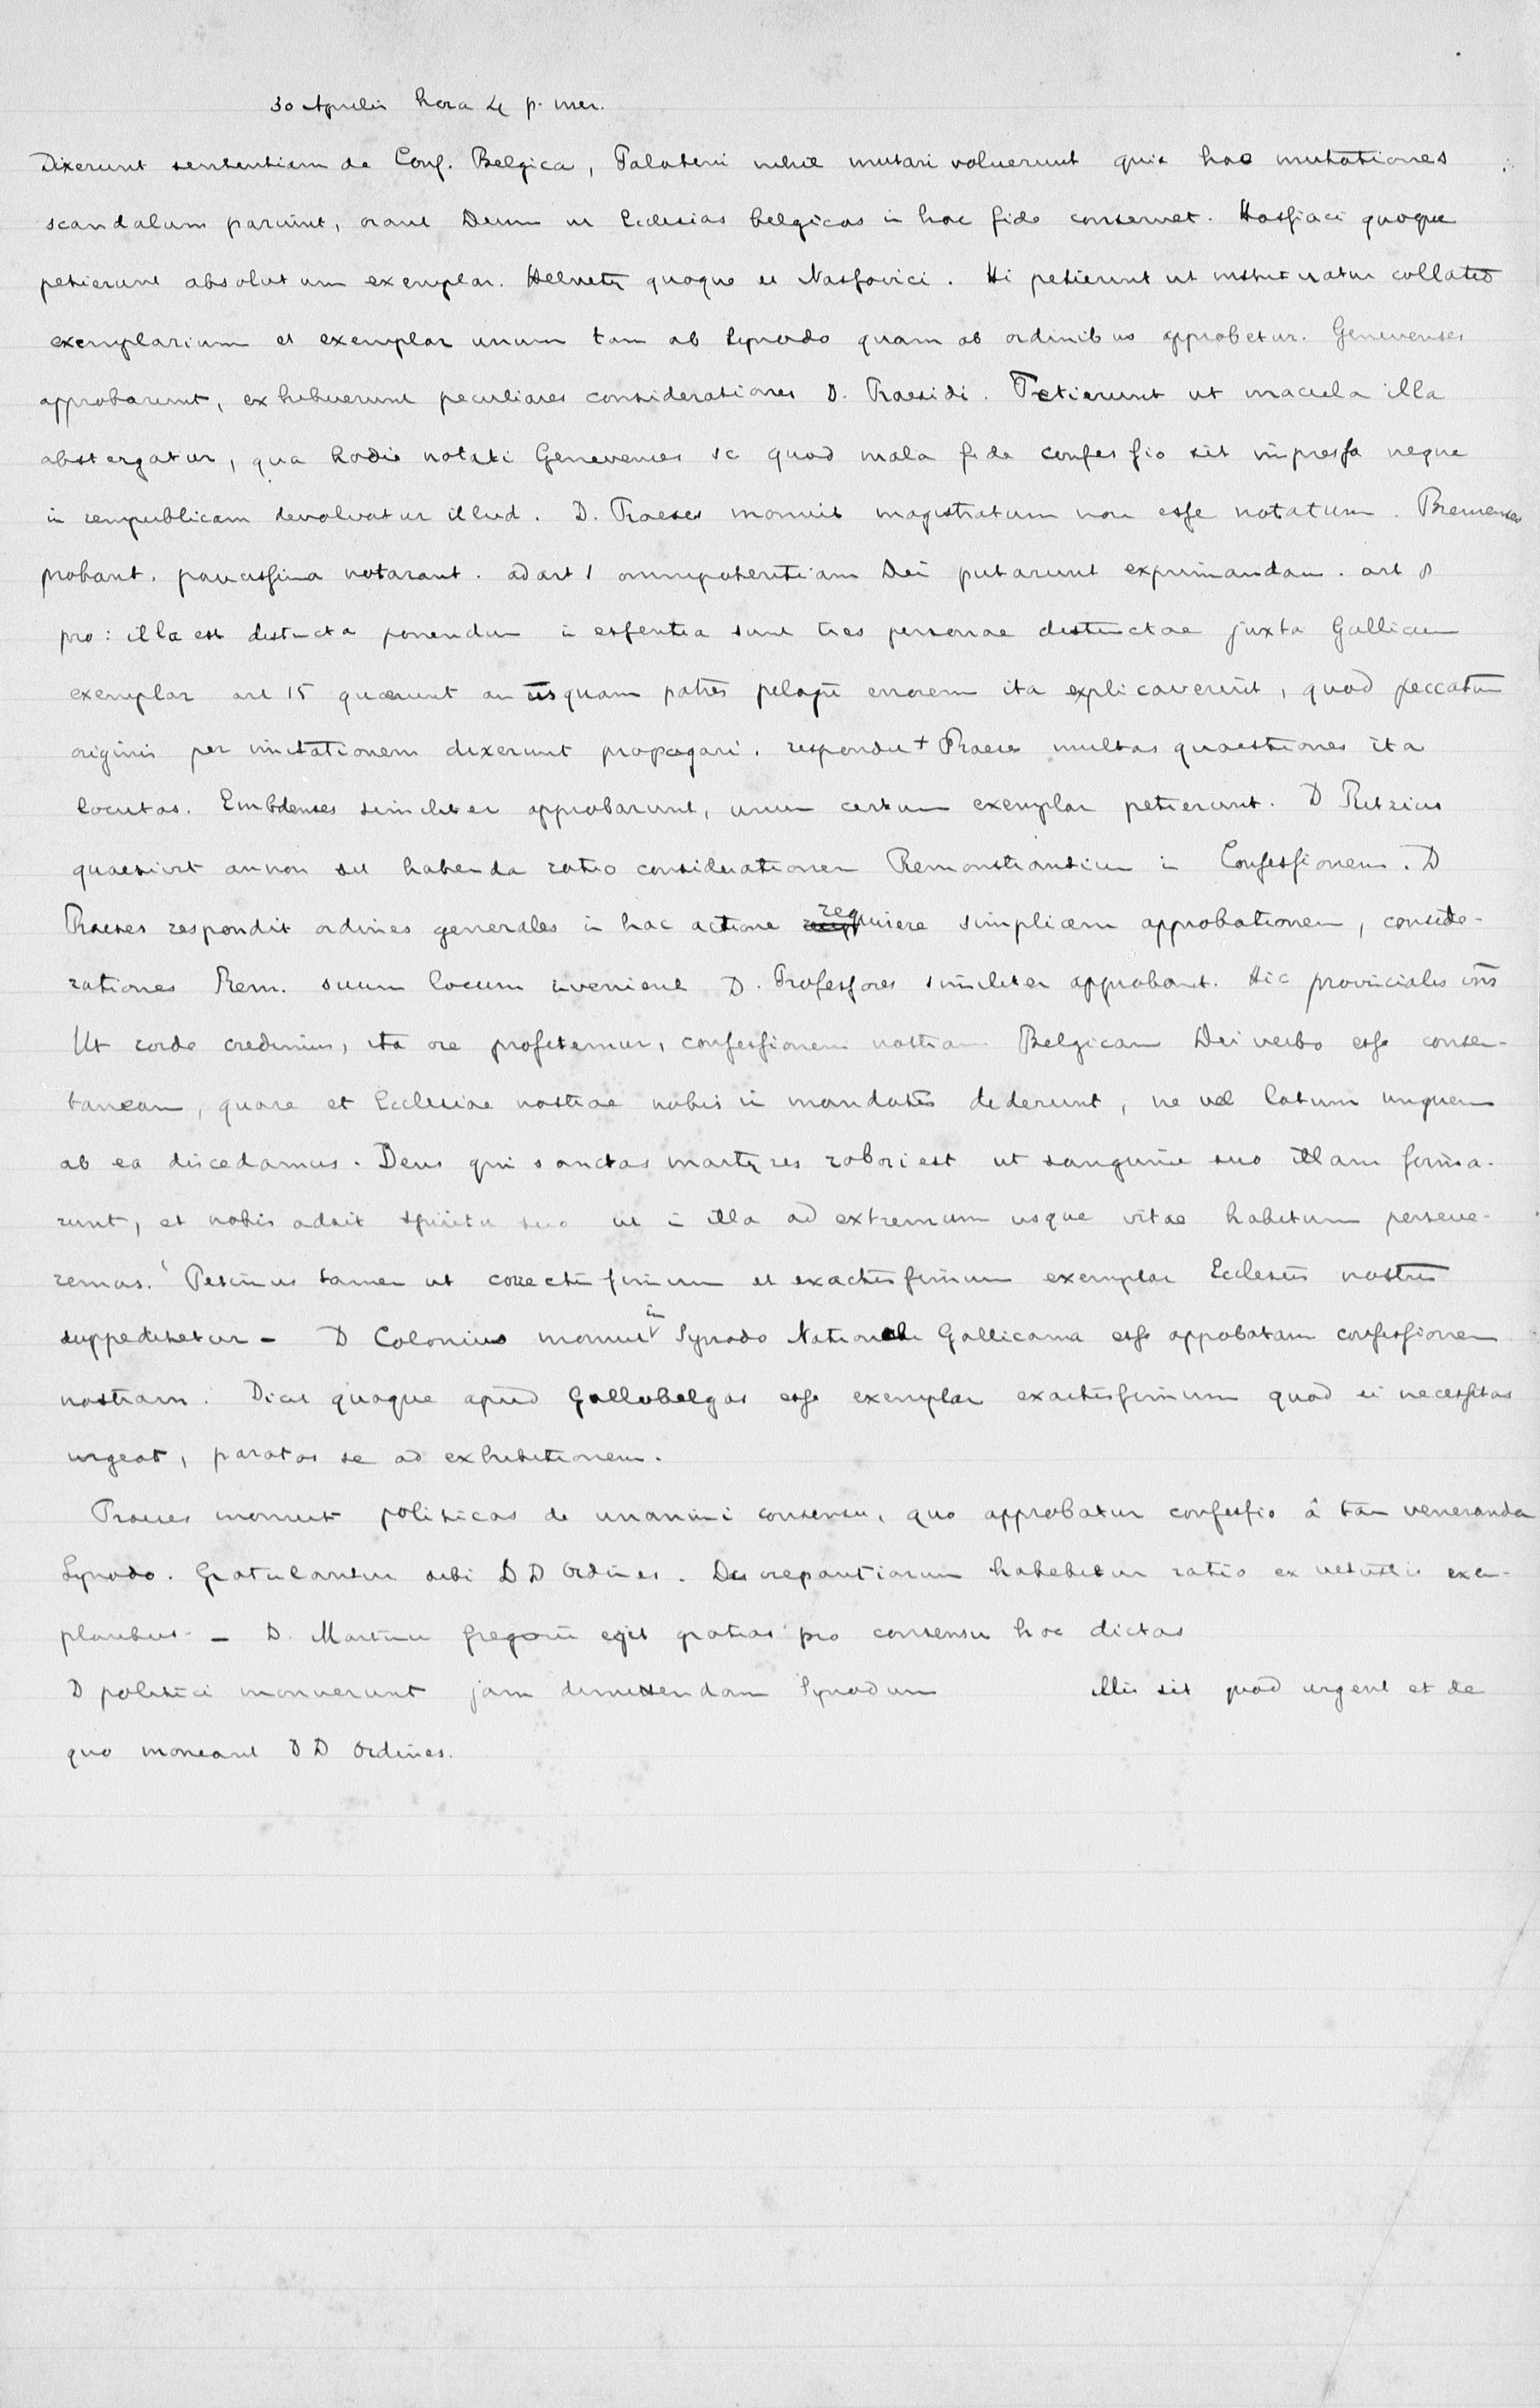 30 Aprilis hora 4 p. mer.
Dixerunt sententiam de Conf. Belgica, Palatini nihil mutari voluerunt quia hae mutationes
scandalum pariunt, orant Deum ut Ecclesias belgicas in hac fide conservet. Hassiaci quoque
petierunt absolutum exemplar. Helvetij quoque et Nassovici. Hi petierunt ut instituatur collatio
exemplarium et exemplar unum tam ab Synodo quam ab ordinibus approbetur. Genevenses
approbarunt, exhibuerunt peculiares considerationes D. Praesidi. Petierunt ut macula illa
abstergatur, qua hodie notati Genevenses sc quod mala fide confessio sit impressa neque
in rempublicam devolvatur illud. D. Praeses monuit magistratum non esse notatum. Bremenses
probant. paucissima notarant. ad art 1 omnipotentiam Dei putarunt exprimandam. art 8
pro: illa est distincta ponendum in essentia sunt tres personae distinctae juxta Gallicum
exemplar art 15 quaerunt an usquam patres pelagii errorem ita explicaverint, quod peccatum
originis per imitationem dixerunt propagari. respondit Praeses multas quaestiones ita
locutas. Embdenses similiter approbarunt, unum certum exemplar petierunt. D Pitzius
quaesivit annon sit habenda ratio considerationem Remonstrantium in Confessionem. D
Praeses respondit ordines generales in hac actione requirere simplicem approbationem, conside-
rationes Rem. suum locum invenient D. Professores similiter approbant. Hic provinciales oms
Ut corde credimus, ita ore profitemur, confessionem nostram Belgicam Dei verbo esse consen-
taneam, quare et Ecclesiae nostrae nobis in mandatis dederunt, ne vel latum unguem
ab ea discedamus. Deus qui sanctas martyres robori est ut sanguine suo illam firma-
runt, et nobis adsit spiritu suo ut in illa ad extremum usque vitae habitum perseve-
remus. Petimus tamen ut correctissimum et exactissimum exemplar Ecclesiis nostris
suppeditetur - D Colonius monuit in Synodo Nationali Gallicana esse approbatam confessionem
nostram. Dicit quoque apud Gallobelgas esse exemplar exactissimum quod si necessitas
urgeat, paratos se ad exhibitionem.
Praeses monuit politicos de unanimi consensu, quo approbatur confessio â tam veneranda
Synodo. Gratulantur sibi DD Ordines. Discrepantiarum habebitur ratio ex vetustis exem-
plaribus. - D. Martinus Gregorii egit gratias pro consensu hoc dictas
D politici monuerunt jam dimittendam Synodum illis sit quod urgent et de
quo moneant DD Ordines.